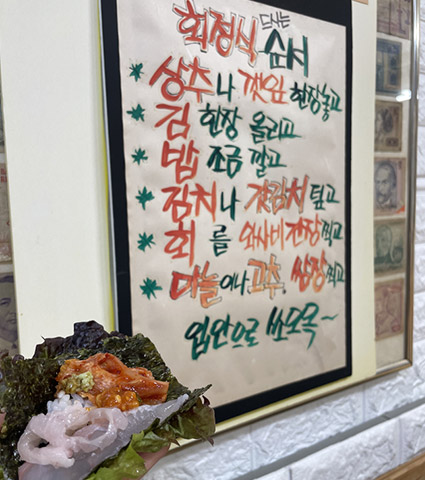 회정식 드시는 순서
* 상추나 깻잎 한장놓고
* 김 한장 올리고
* 밥 조금 깔고
* 김치나 갓김치 덮고
* 회를 와사비간장찍고
* 마늘이나 고추, 쌈장찍고
입안으로 쏘오옥~